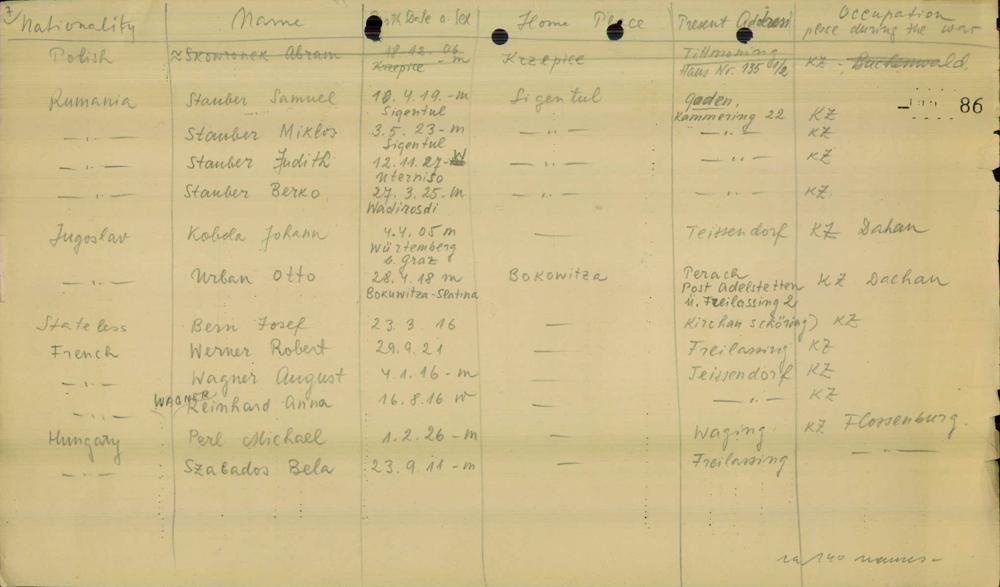 7
Nationality Name Birth Date a. Sex Home Place Present Address Occupation
place during the war
Polish ~Skowronek Abram 18.12.06 - m Krzepice Tittmoning KZ - Buchenwald
Krzepice Haus Nr. 135 1/2
Rumania Stauber Samuel 10.4.19. - m Sigentul Gaden,
Sigentul Kammering 22 KZ 86
— " — Stauber Miklos 3.5. 23 - m — " — — " — KZ
Sigentul
— " — Stauber Judith 12.11.27 - W — " — — " — KZ
Uterniso
— " — Stauber Berko 27.3.25. - m — " — — " — KZ
Wadirosdi
Jugoslav Kobola Johann 4.4.05 m — Teissendorf KZ Dahau
Würtemberg
b. Graz
— " — Urban Otto 28.4.18 m Bokowitza Perach KZ Dachau
Bokuwitza-Slatina Post Adelstetten
ü. Freilassing 2
Stateless Bern Josef 23.3.16 — Kirchanschöring) KZ
French Werner Robert 29.9.21 — Freilassing KZ
— " — Wagner August 4.1.16 - m — Teissendorf KZ
— " — WAGNER Reinhard Anna 16.8.16 w — — " — KZ
Hungary Perl Michael 1.2.26 - m — Waging KZ Flossenburg.
— " — Szabados Bela 23.9.11 - m — Freilassing — " —
ca 140 names -